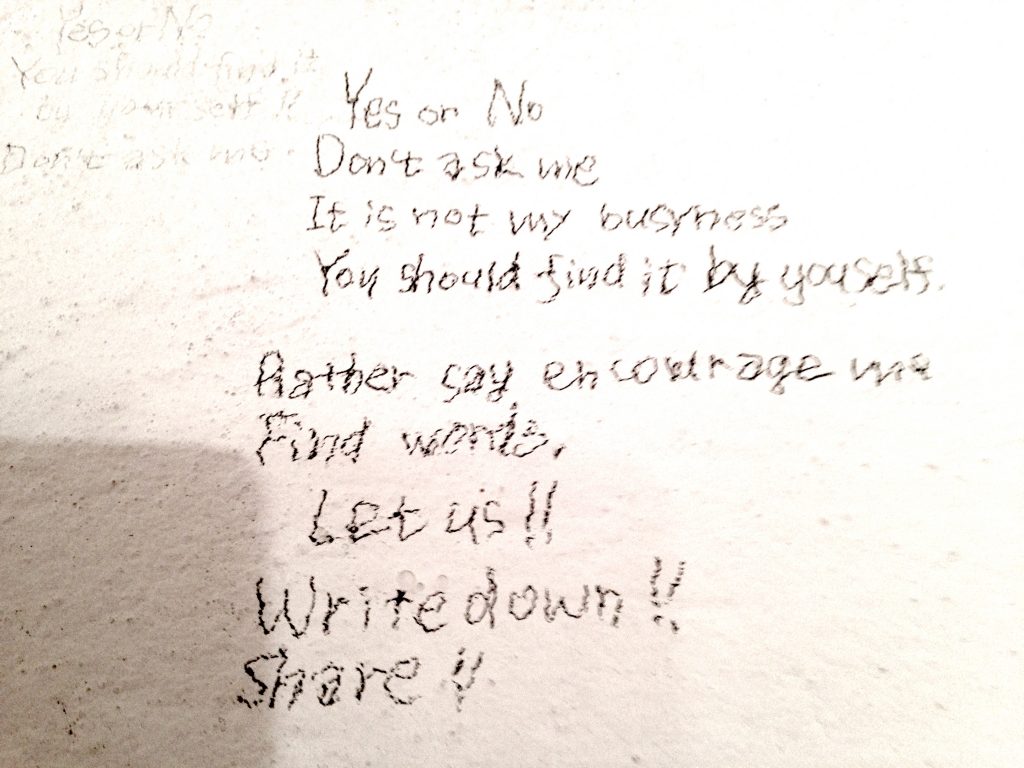 Yes or No
You should find it
by yourself !!
Don't ask me.
Yes or No
Don't ask me
It is not my busyness
You should find it by youself.
Rather say encourage me
Find words.
Let us !!
Write down !!
Share !!